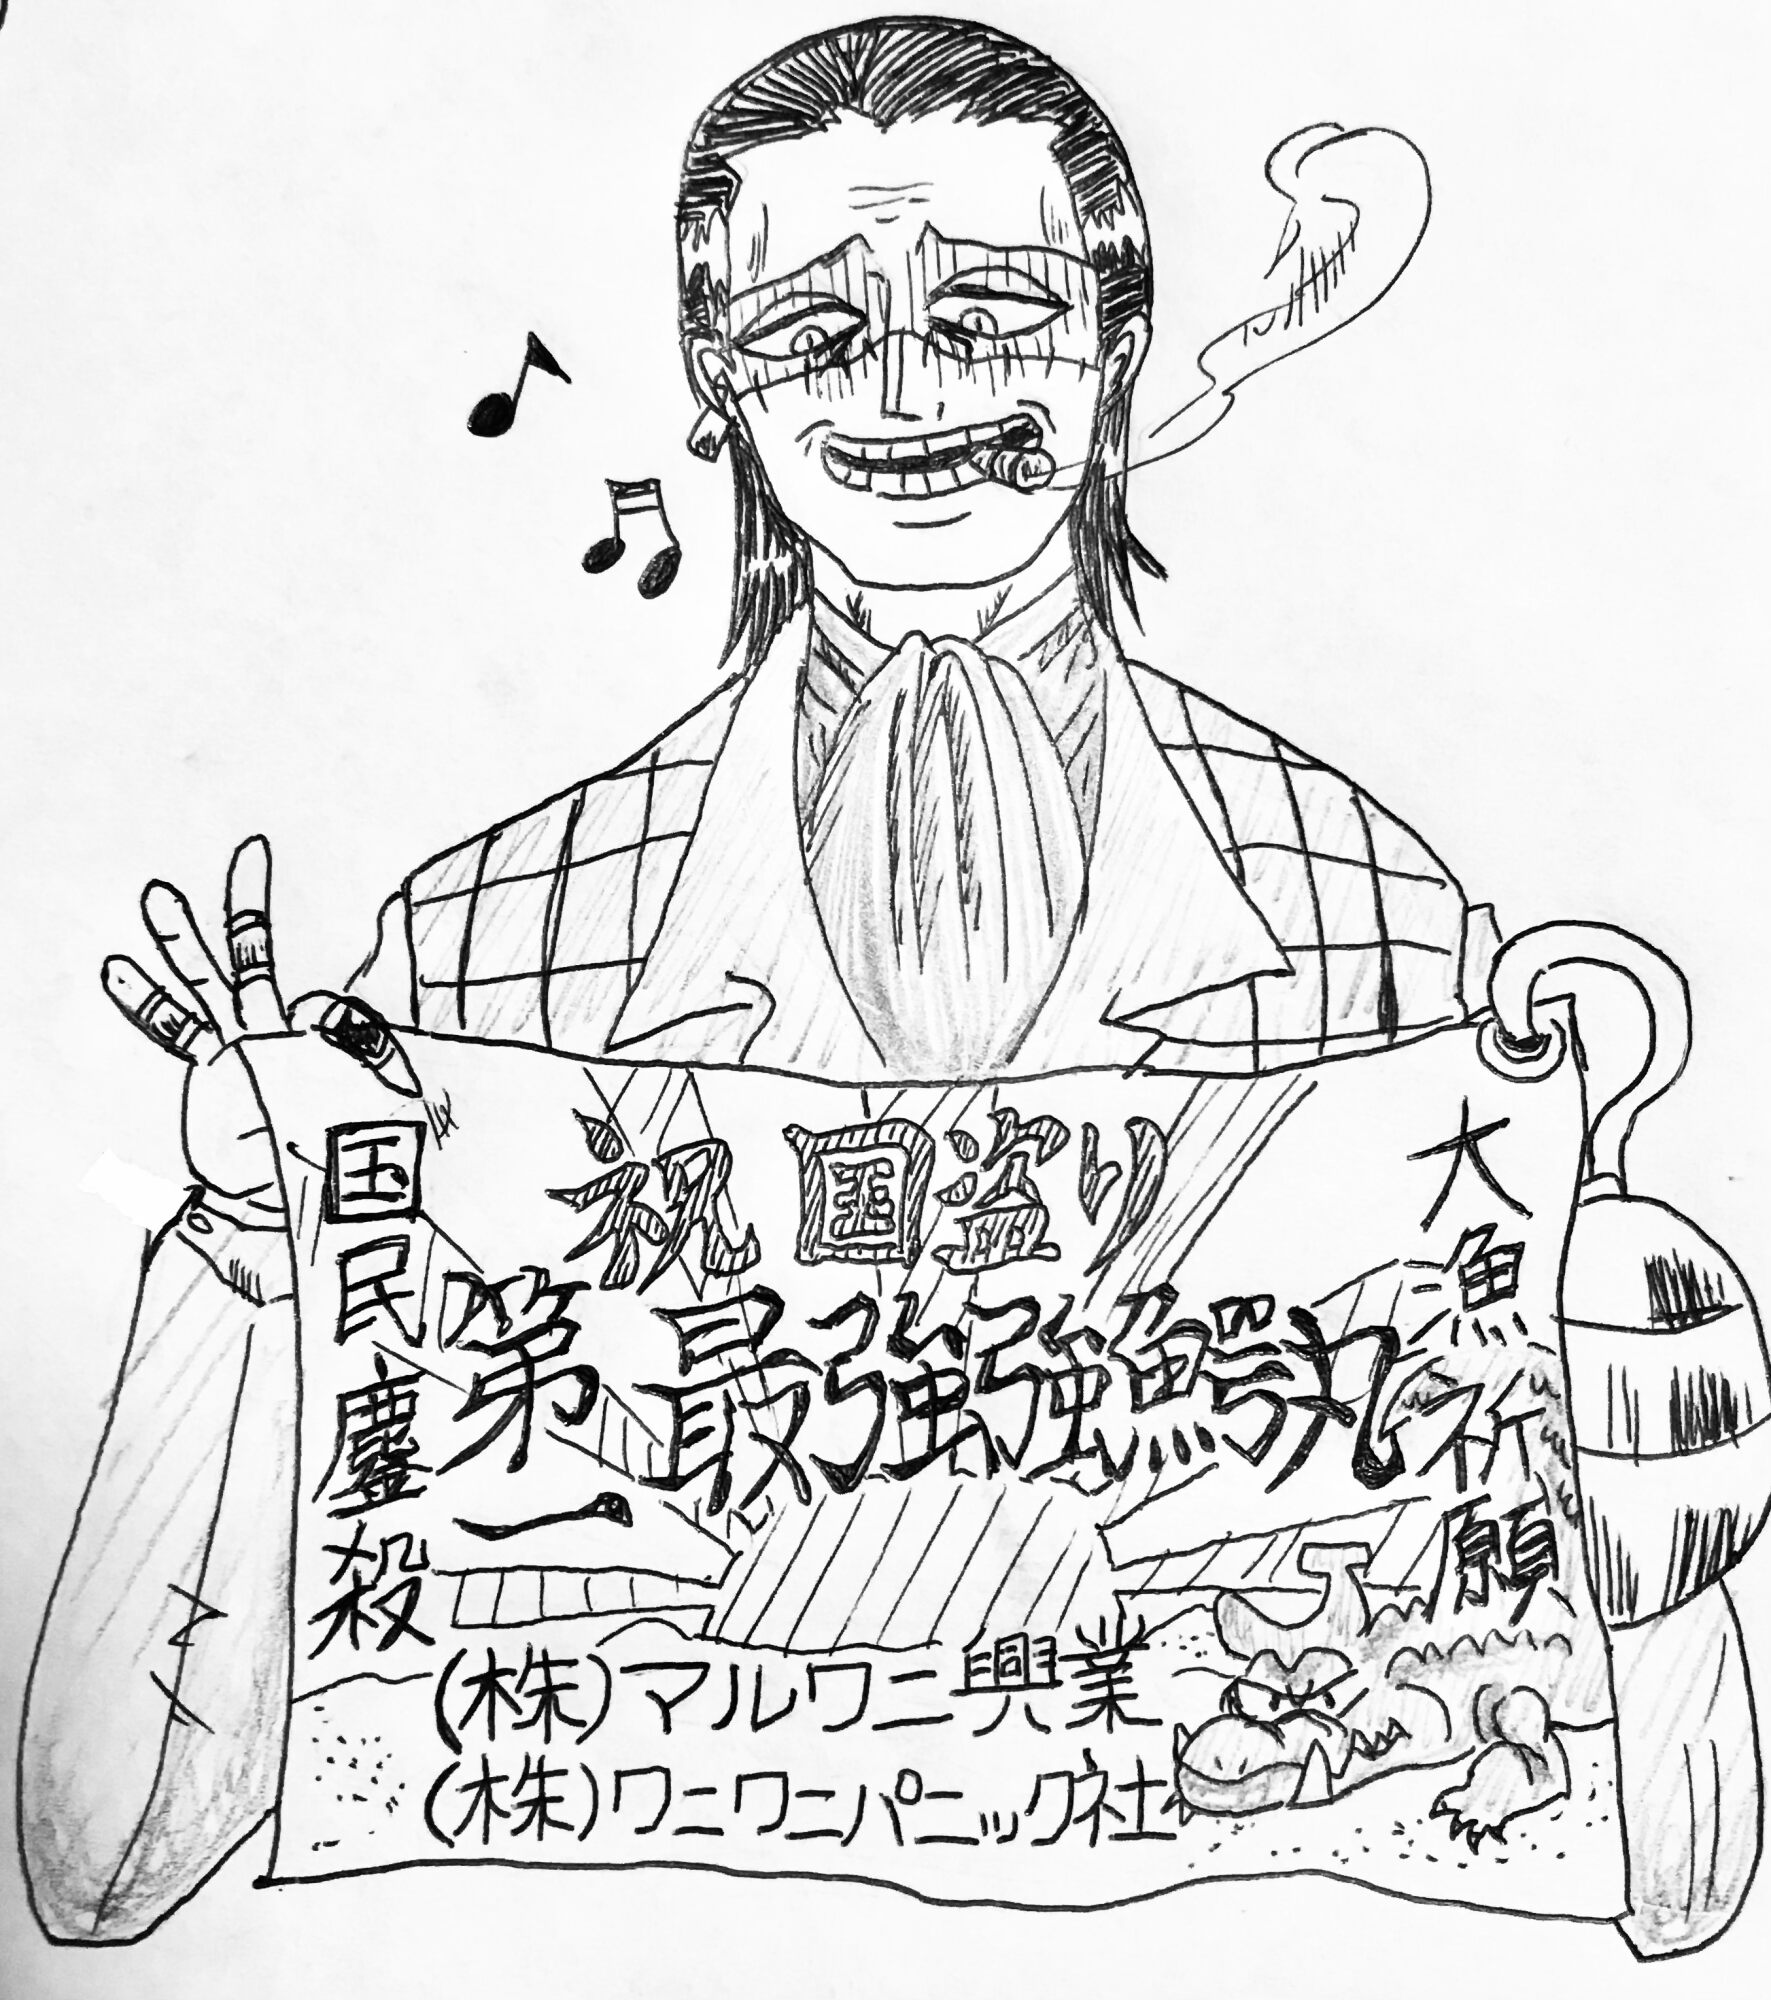 祝国盗り
大漁祈願
第一
最強強鰐丸
国民鏖殺
(株)マルワニ興業
(株)ワニワニパニック社